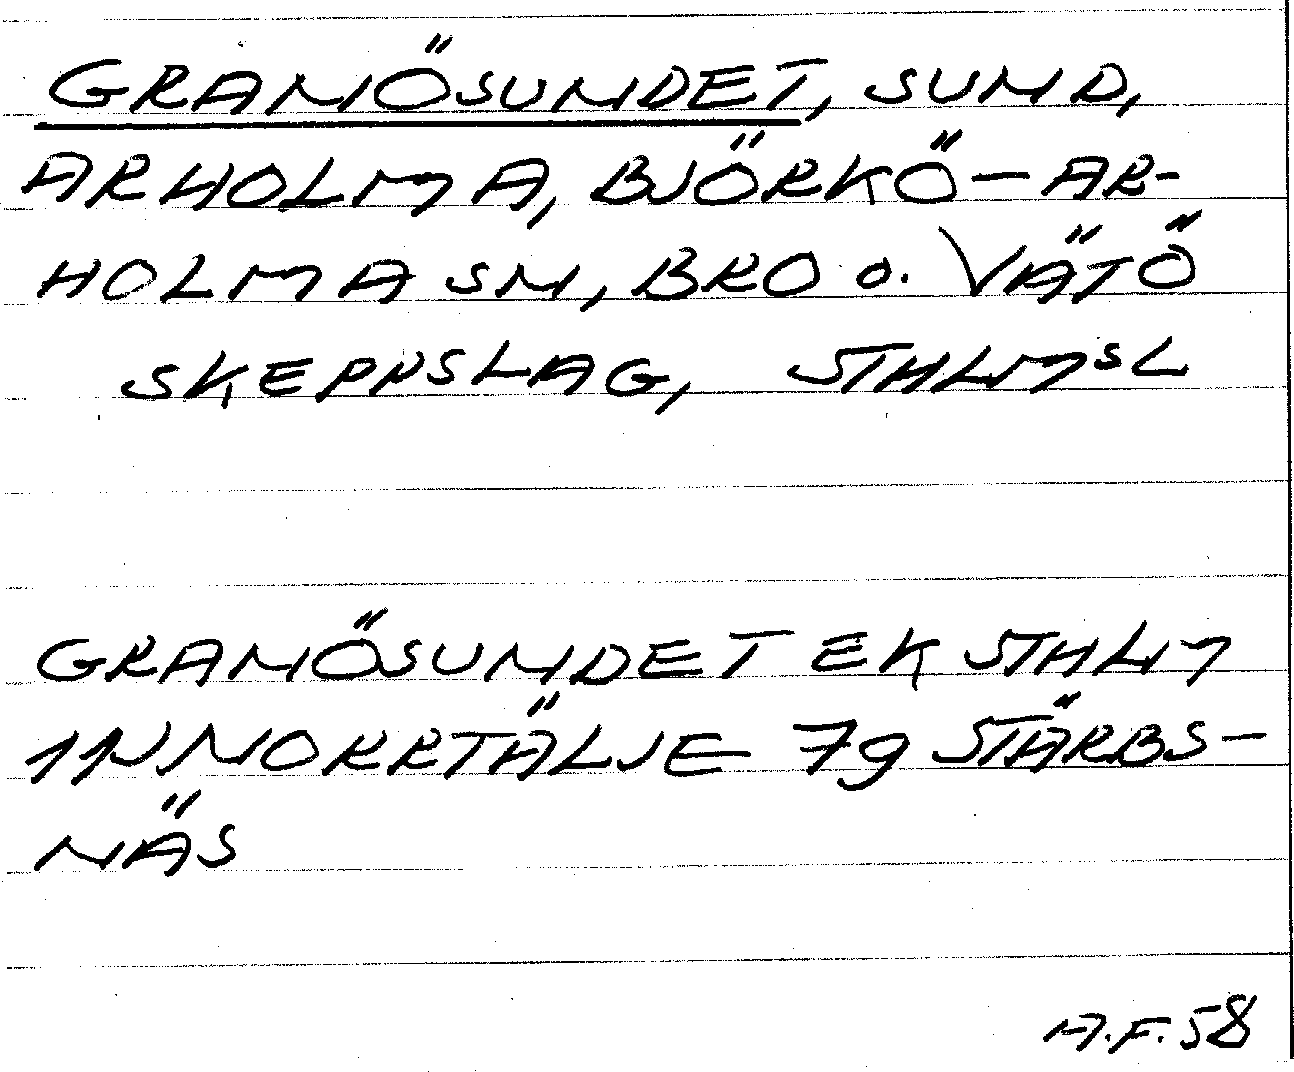 GRANÖSUNDET, SUND,
ARHOLMA, BJÖRKÖ-AR-
HOLMA SN, BRO o. VÄTÖ
SKEPPSLAG, STHLMSL
GRANÖSUNDET EK STHLM
11J NORRTÄLJE 7g STÄRBS-
NÄS
A.F. 58